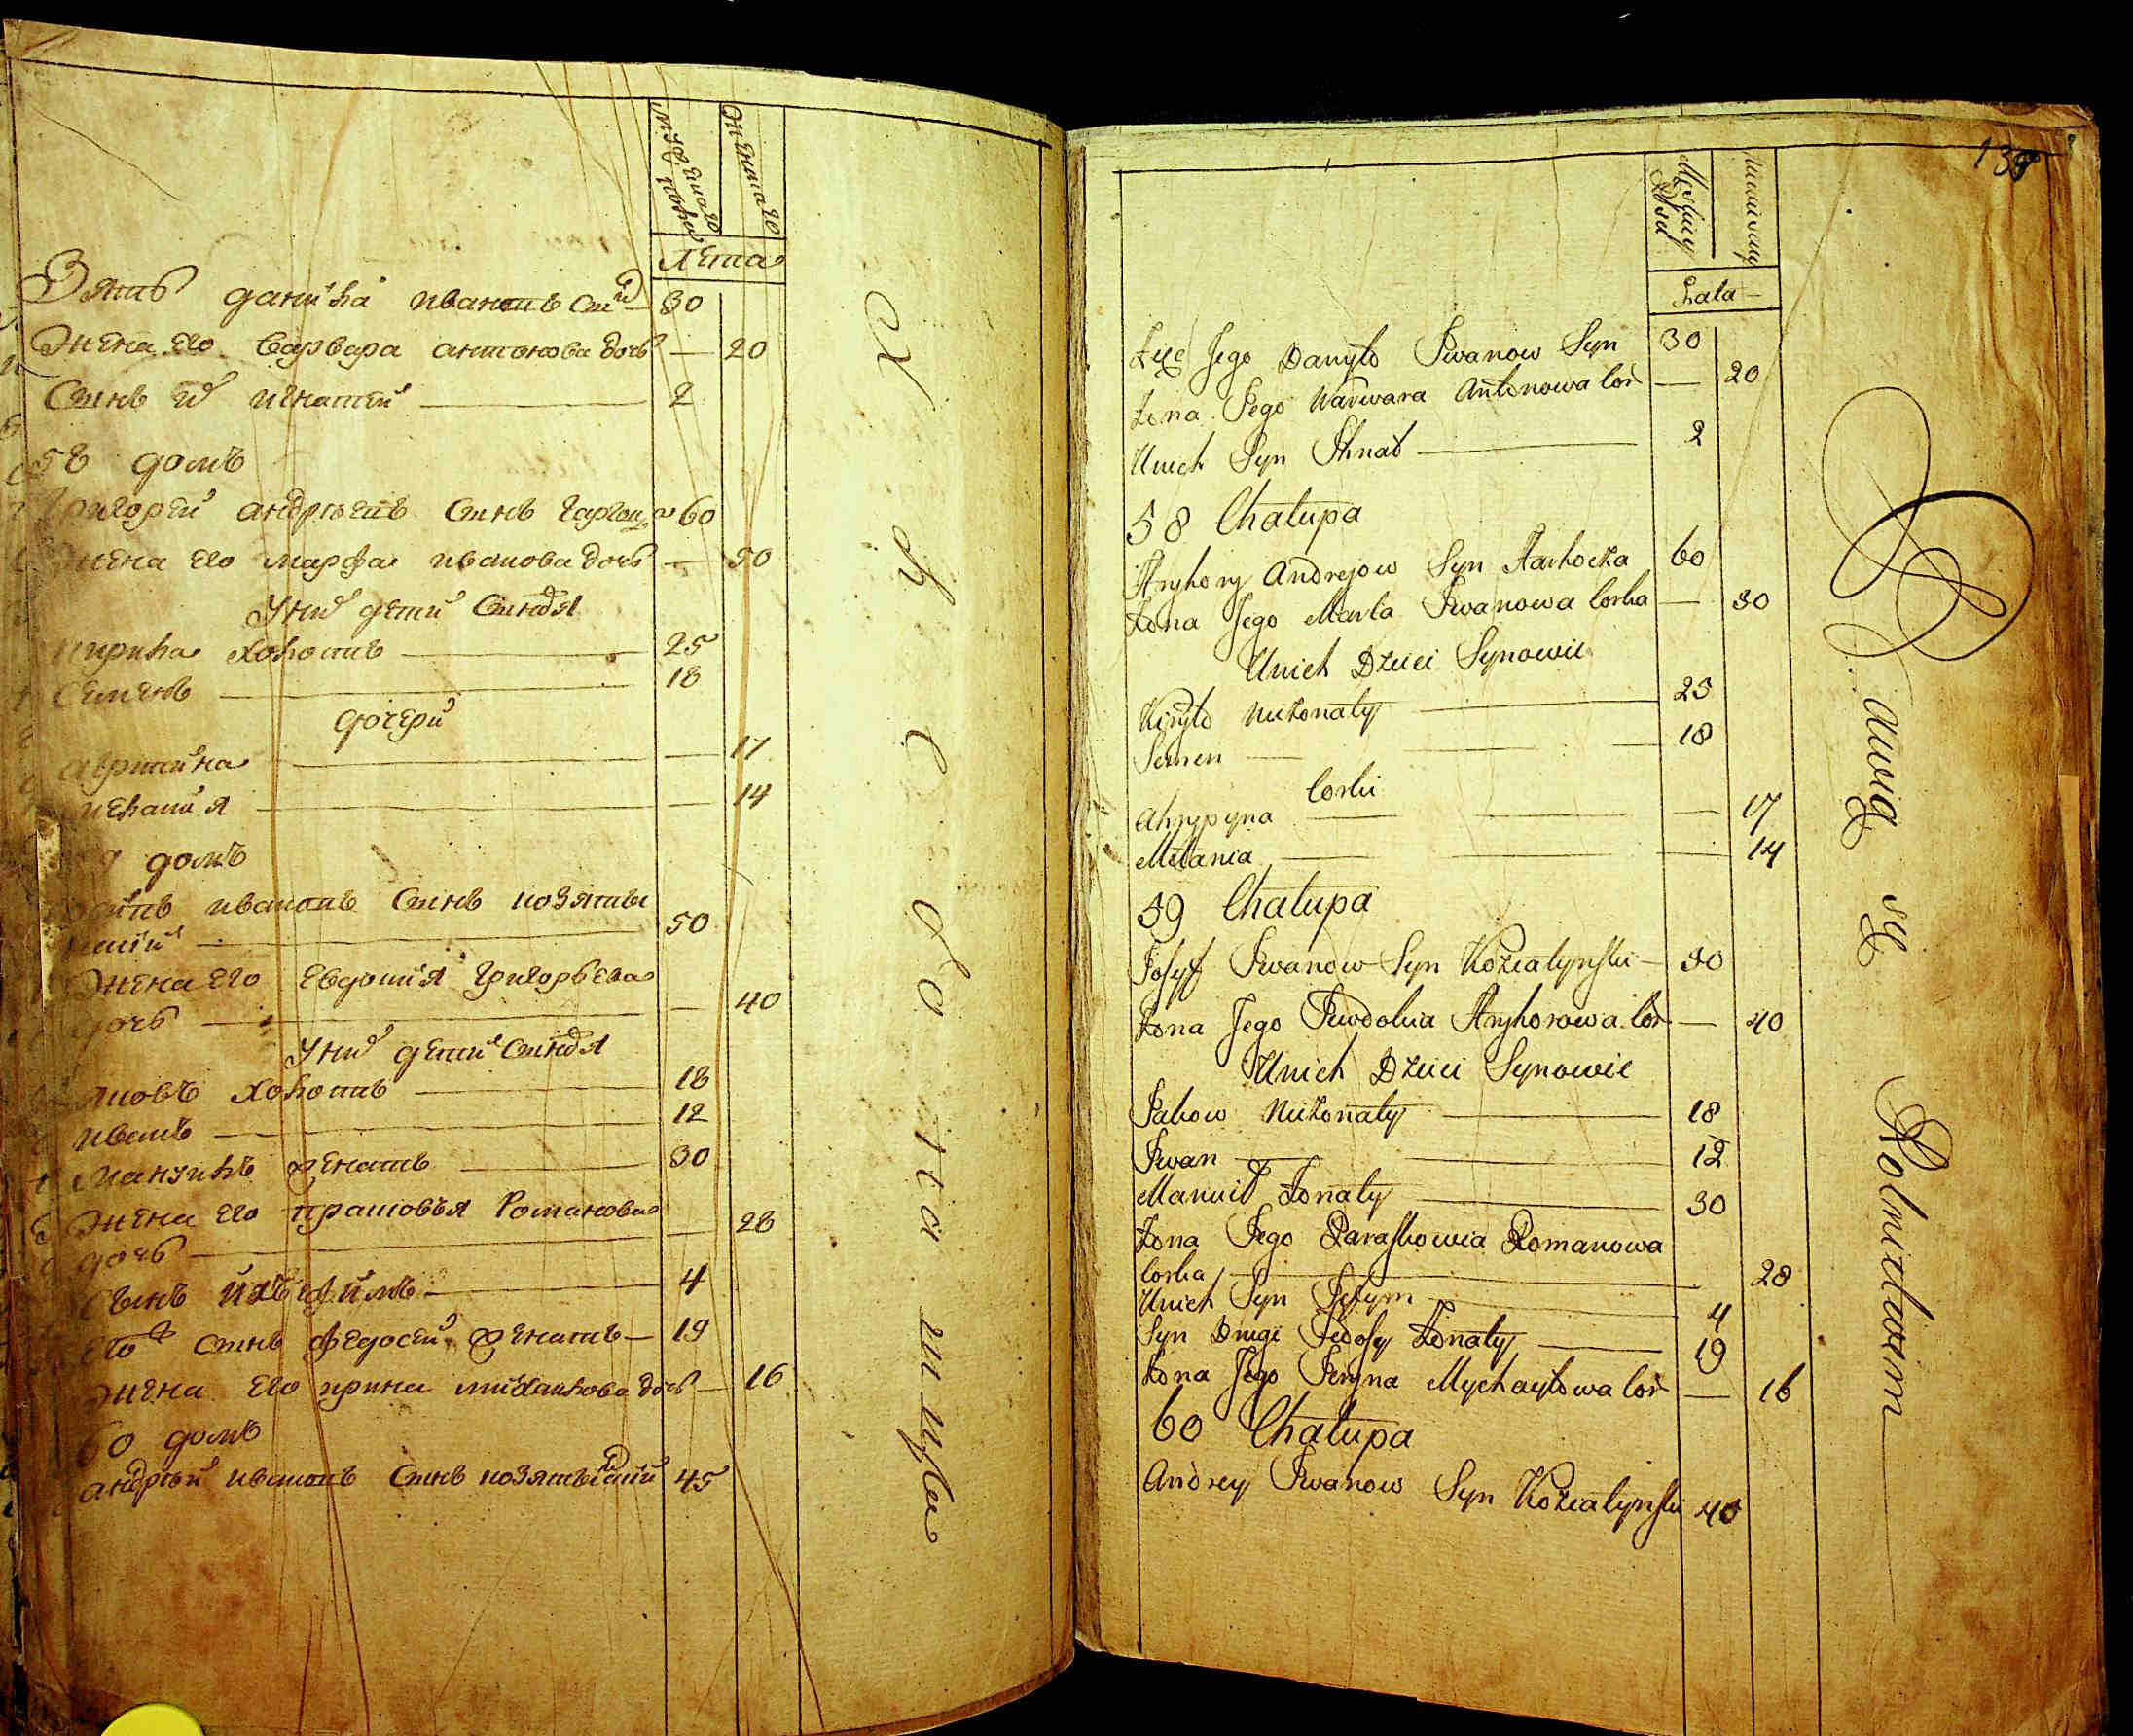 мужеска полу
женска го
лета
Зять данила иванов син 30
Жена его варвара антонова дочь — 20
Синъ их игнатий — 2
58 домъ
григорей андреевъ синъ 60
жена его марфа иванова дочь — 50
У них дети синовя
кирила холостъ — 25
Семенъ — 18
дочери
агрипина — 17
мелания — 14
59 домъ
иосипъ ивановъ синъ козятин
ский — 50
жена его евдокия григорьева
дочь — 40
У них дети синовя
яковъ холостъ — 18
иванъ — 12
мануилъ женатъ — 30
жена его прасковья романова
дочь — 28
сынъ ихъ ефимъ — 4
его синъ федосей женатъ — 19
жена его ирина михайлова дочь — 16
60 домъ
андрей ивановъ синъ козятинский 45
138
Lata
Zięć Jego Danyło Iwanow Syn 30
Żona Jego Warwara Antonowa Cor — 20
Unich Syn Ihnat — 2
58 Chałupa
Hryhory Andrejow Syn 60
Żona Jego Marta Iwanowa Corka — 50
Unich Dzieci Synowie
Kiryło Nieżonaty — 25
Semen — 18
Corki
Ahrypyna — 17
Melania — 14
59 Chałupa
Josyf Iwanow Syn Koziatynski — 50
Żona Jego Iewdokia Hryhorowa Cor — 40
Unich Dzieci Synowie
Jakow Nieżonaty — 18
Iwan — 12
Manuił Żonaty — 30
Żona Jego Paraskowia Romanowa
Corka — 28
Unich Syn Jefym — 4
Syn Drugi Fedosy Żonaty — 19
Żona Jego Iryna Mychayłowa Cor — 16
60 Chałupa
Andrey Iwanow Syn Koziatynski 45
Rolnictwem